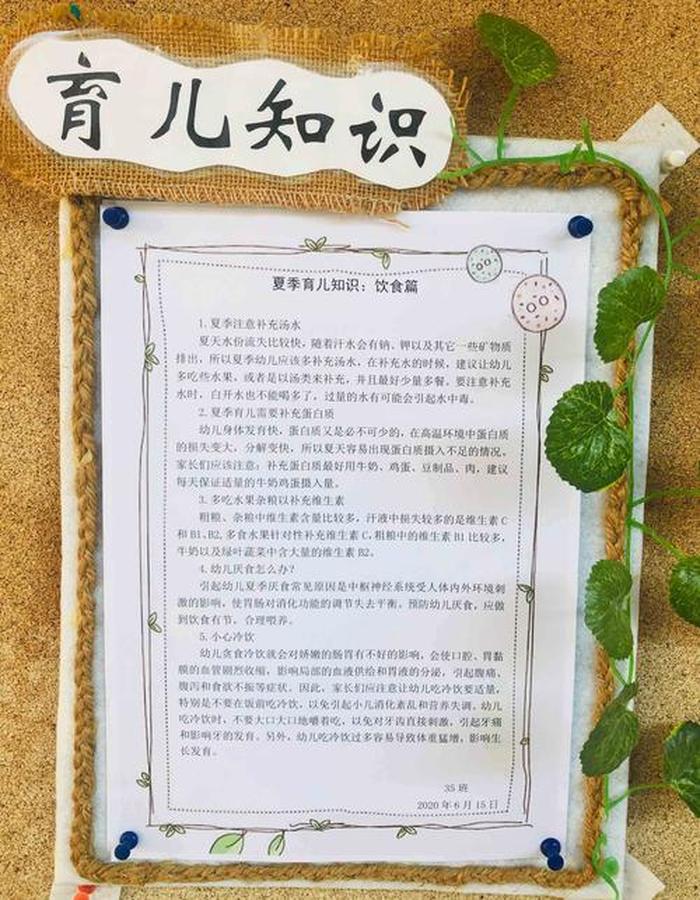 育儿知识
夏季育儿知识：饮食篇
1.夏季注意补充汤水
夏天水份流失比较快，随着汗水会有钠、钾以及其它一些矿物质
排出，所以夏季幼儿应该多补充汤水，在补充水的时候，建议让幼儿
多吃些水果，或者是以汤类来补充，并且最好少量多餐，要注意补充
水时，白开水也不能喝多了，过量的水有可能会引起水中毒。
2.夏季育儿需要补充蛋白质
幼儿身体发育快，蛋白质又是必不可少的，在高温环境中蛋白质
的损失变大，分解变快，所以夏天容易出现蛋白质摄入不足的情况。
家长们应该注意：补充蛋白质最好用牛奶、鸡蛋、豆制品、肉，建议
每天保证适量的牛奶鸡蛋摄入量。
3.多吃水果杂粮以补充维生素
粗粮、杂粮中维生素含量比较多，汗液中损失较多的是维生素C
和B1、B2,多食水果针对性补充维生素C,粗粮中的维生素B1比较多，
牛奶以及绿叶蔬菜中含大量的维生素B2。
4.幼儿厌食怎么办？
引起幼儿夏季厌食常见原因是中枢神经系统受人体内外环境刺
激的影响，使胃肠对消化功能的调节失去平衡。预防幼儿厌食，应做
到饮食有节，合理喂养。
5.小心冷饮
幼儿贪食冷饮就会对娇嫩的肠胃有不好的影响，会使口腔、胃黏
膜的血管剧烈收缩，影响局部的血液供给和胃液的分泌，引起腹痛、
腹泻和食欲不振等症状。因此，家长们应注意让幼儿吃冷饮要适量，
特别是不要在饭前吃冷饮，以免引起小儿消化紊乱和营养失调。幼儿
吃冷饮时，不要大口大口地嚼着吃，以免对牙齿直接刺激，引起牙痛
和影响牙的发育。另外，幼儿吃冷饮过多容易导致体重猛增，影响生
长发育。
35班
2020年6月15日